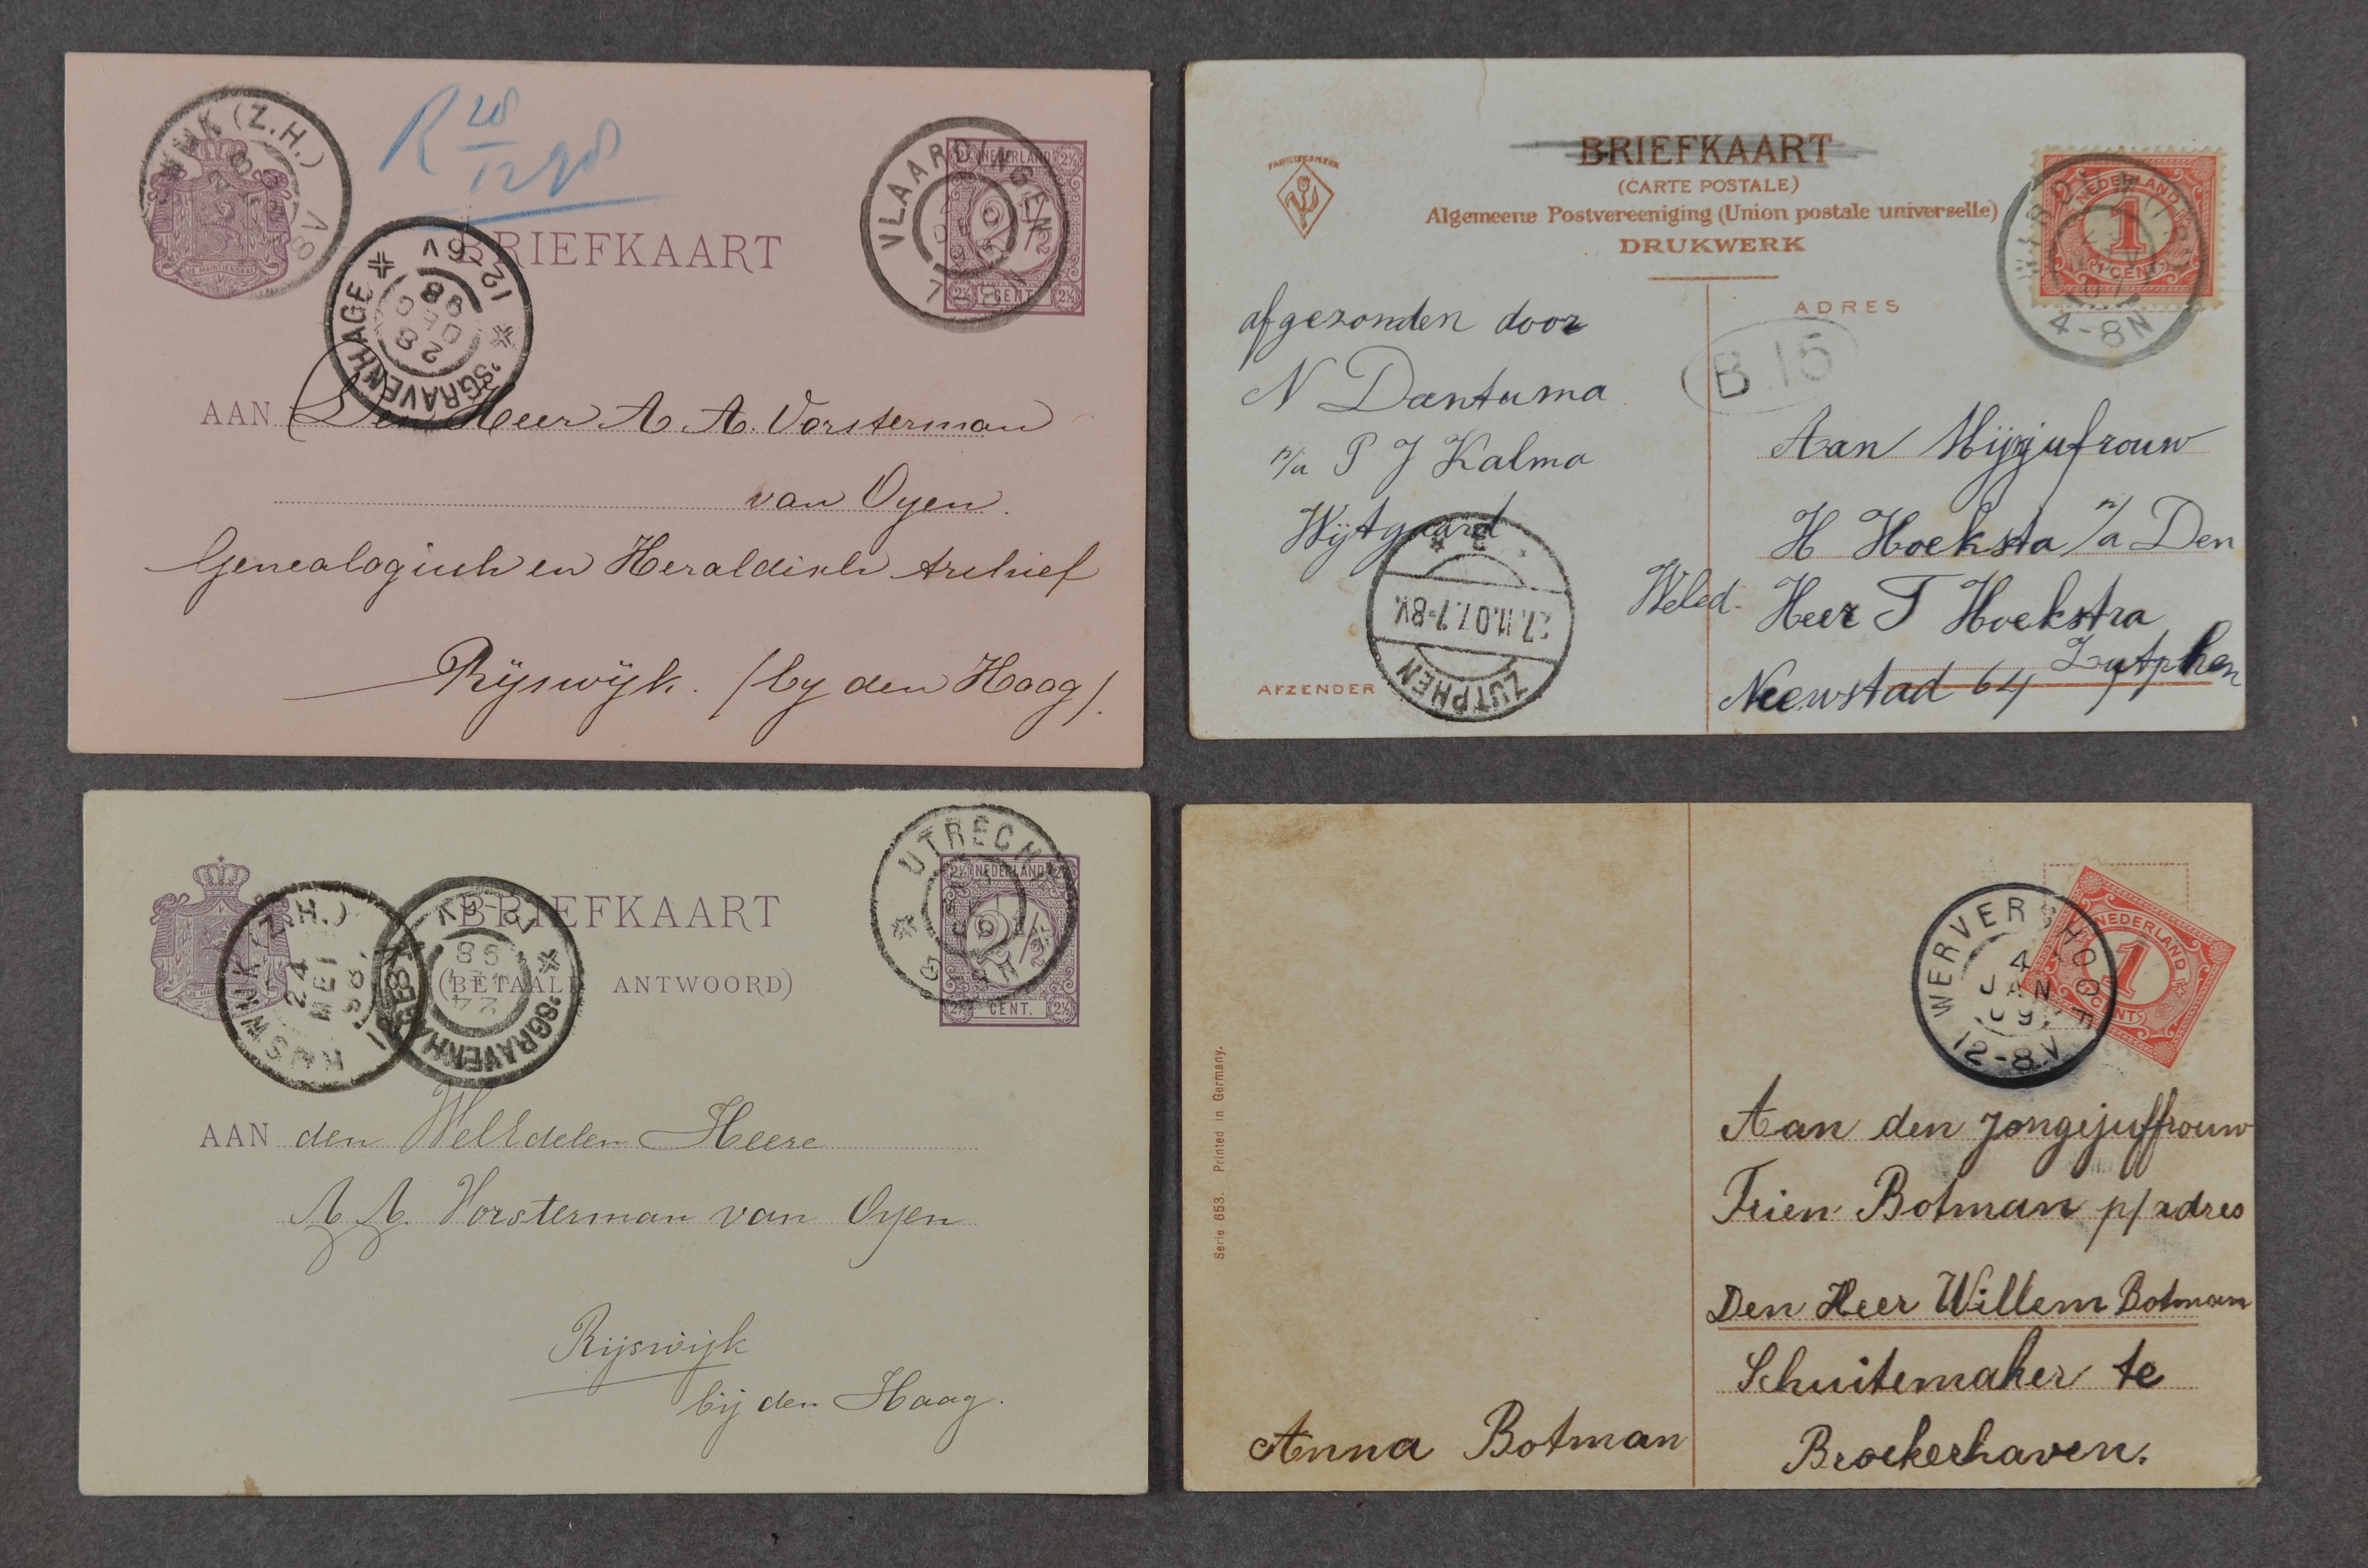 (Z.H.)
R 28
12 98
VLAARDINGEN
NEDERLAND
2½
CENT
JE MAINTIENDRAI
BRIEFKAART
'SGRAVENHAGE
12-6V
28
DEC
98
AAN Den Heer A. A. Vorsterman
van Oyen.
Genealogisch en Heraldisch Archief
Rijswijk. (by den Haag).
FABRIEKSMERK
BRIEFKAART
(CARTE POSTALE)
Algemeene Postvereeniging (Union postale universelle)
DRUKWERK
NEDERLAND
1
CENT
4-8N
ADRES
B.15
afgezonden door
N Dantuma
p/a P J Kalma
Wijtgaard
ZUTPHEN
27.11.07.7-8V.
AFZENDER
Aan Mijnjufrouw
H Hoeksta p/a Den
Weled. Heer T Hoekstra
Zutphen
Neewstad 64
UTRECHT
NEDERLAND
2½
CENT.
BRIEFKAART
(BETAALD ANTWOORD)
RIJSWIJK (Z.H.)
24
MEI
98
'SGRAVENHAGE
24
98
AAN den WelEdelen Heere
A. A. Vorsterman van Oyen
Rijswijk
bij den Haag.
WERVERSHOOF
4
JAN
09
12-8V
NEDERLAND
1
CENT
Serie 653. Printed in Germany.
Aan den Jongejuffrouw
Trien Botman p/adres
Den Heer Willem Botman
Schuitemaker te
Broekerhaven.
Anna Botman